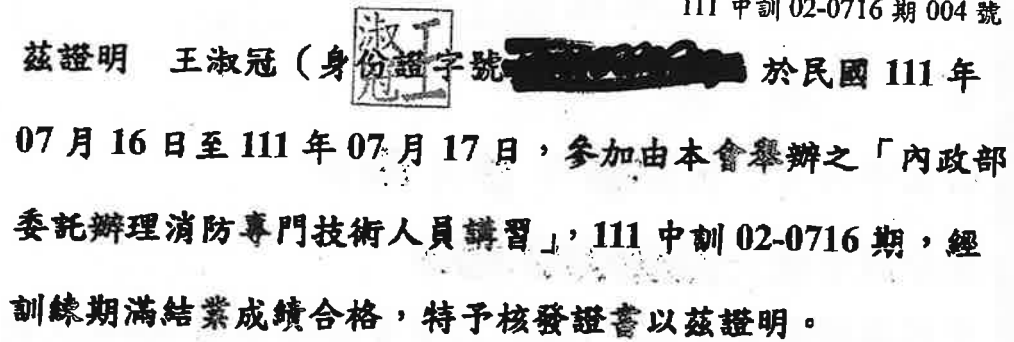 111 中訓 02-0716 期 004 號
茲證明 王淑冠（身份證字號 於民國 111 年
07 月 16 日至 111 年 07 月 17 日，參加由本會舉辦之「內政部
委託辦理消防專門技術人員講習」，111 中訓 02-0716 期，經
訓練期滿結業成績合格，特予核發證書以茲證明。
王淑冠